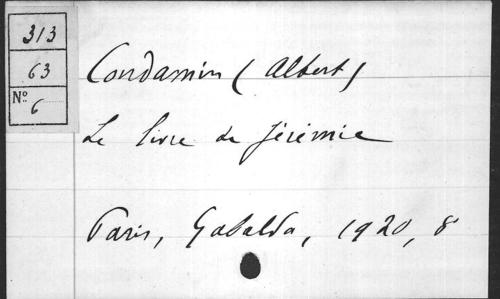 313
63
N° 6
Condamin (Albert)
Le livre de Jérémie
Paris, Gabalda, 1920, 8°